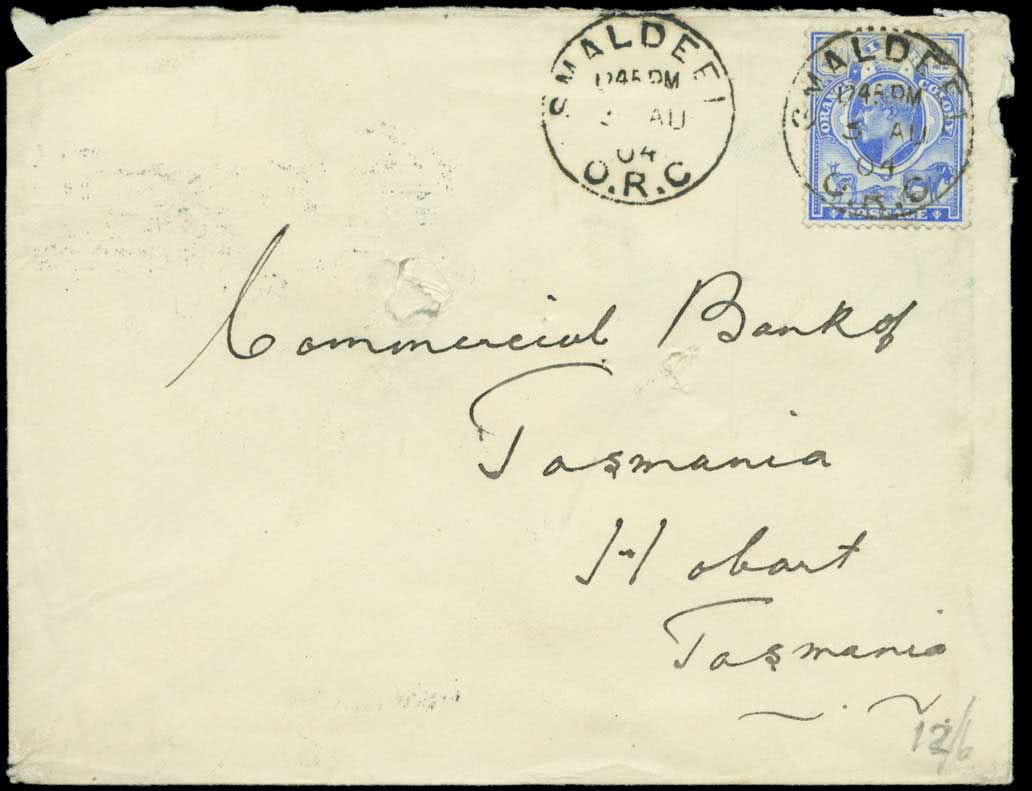 SMALDEEL
1245 PM
5 AU
04
O.R.C
SMALDEEL
1245 PM
5 AU
04
O.R.C
ORANGE
COLONY
POSTAGE
Commercial Bank of
Tasmania
Hobart
Tasmania
12/6